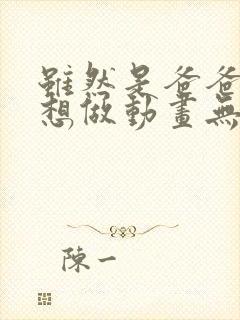 雖然是爸爸
想做動畫無
陳一